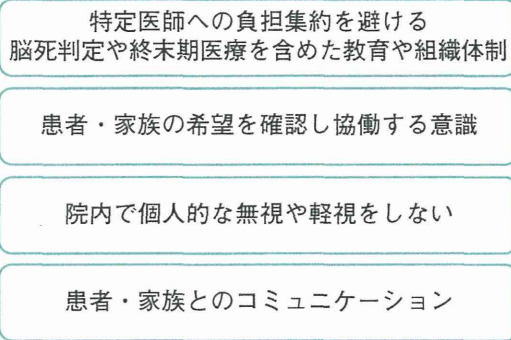 特定医師への負担集約を避ける
脳死判定や終末期医療を含めた教育や組織体制
患者・家族の希望を確認し協働する意識
院内で個人的な無視や軽視をしない
患者・家族とのコミュニケーション